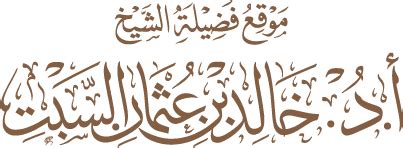 مَوقِع فَضِيلَة الشَّيْخ
أ.د. خَالِد بْن عُثمَان السَّبْت